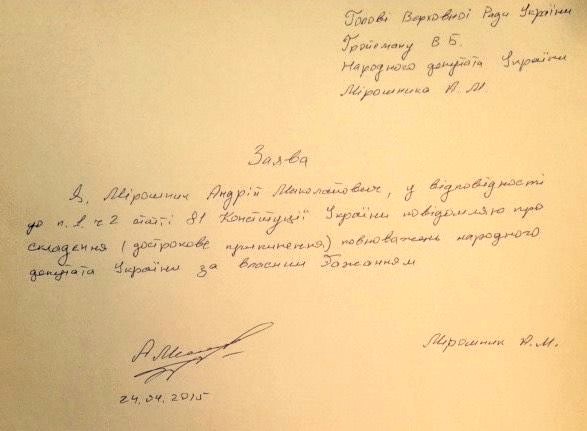 Голові Верховної Ради України
Гройсману В Б.
Народного депутата України
Мірошника А. М.
Заява
Я, Мірошник Андрій Миколайович, у відповідності
до п. 1 ч 2 статті 81 Конституції України повідомляю про
складення (дострокове припинення) повноважень народного
депутата України за власним бажанням
Мірошник А. М.
24.04.2015